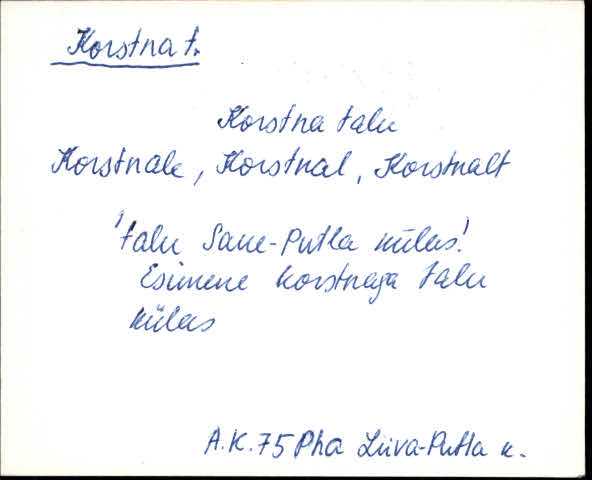 Korstna t.
Korstna talu
Korstnale, Korstnal, Korstnalt
'talu Saue-Putla külas'.
Esimene korstnaga talu
külas
A.K. 75 Pha Liiva-Putla k.